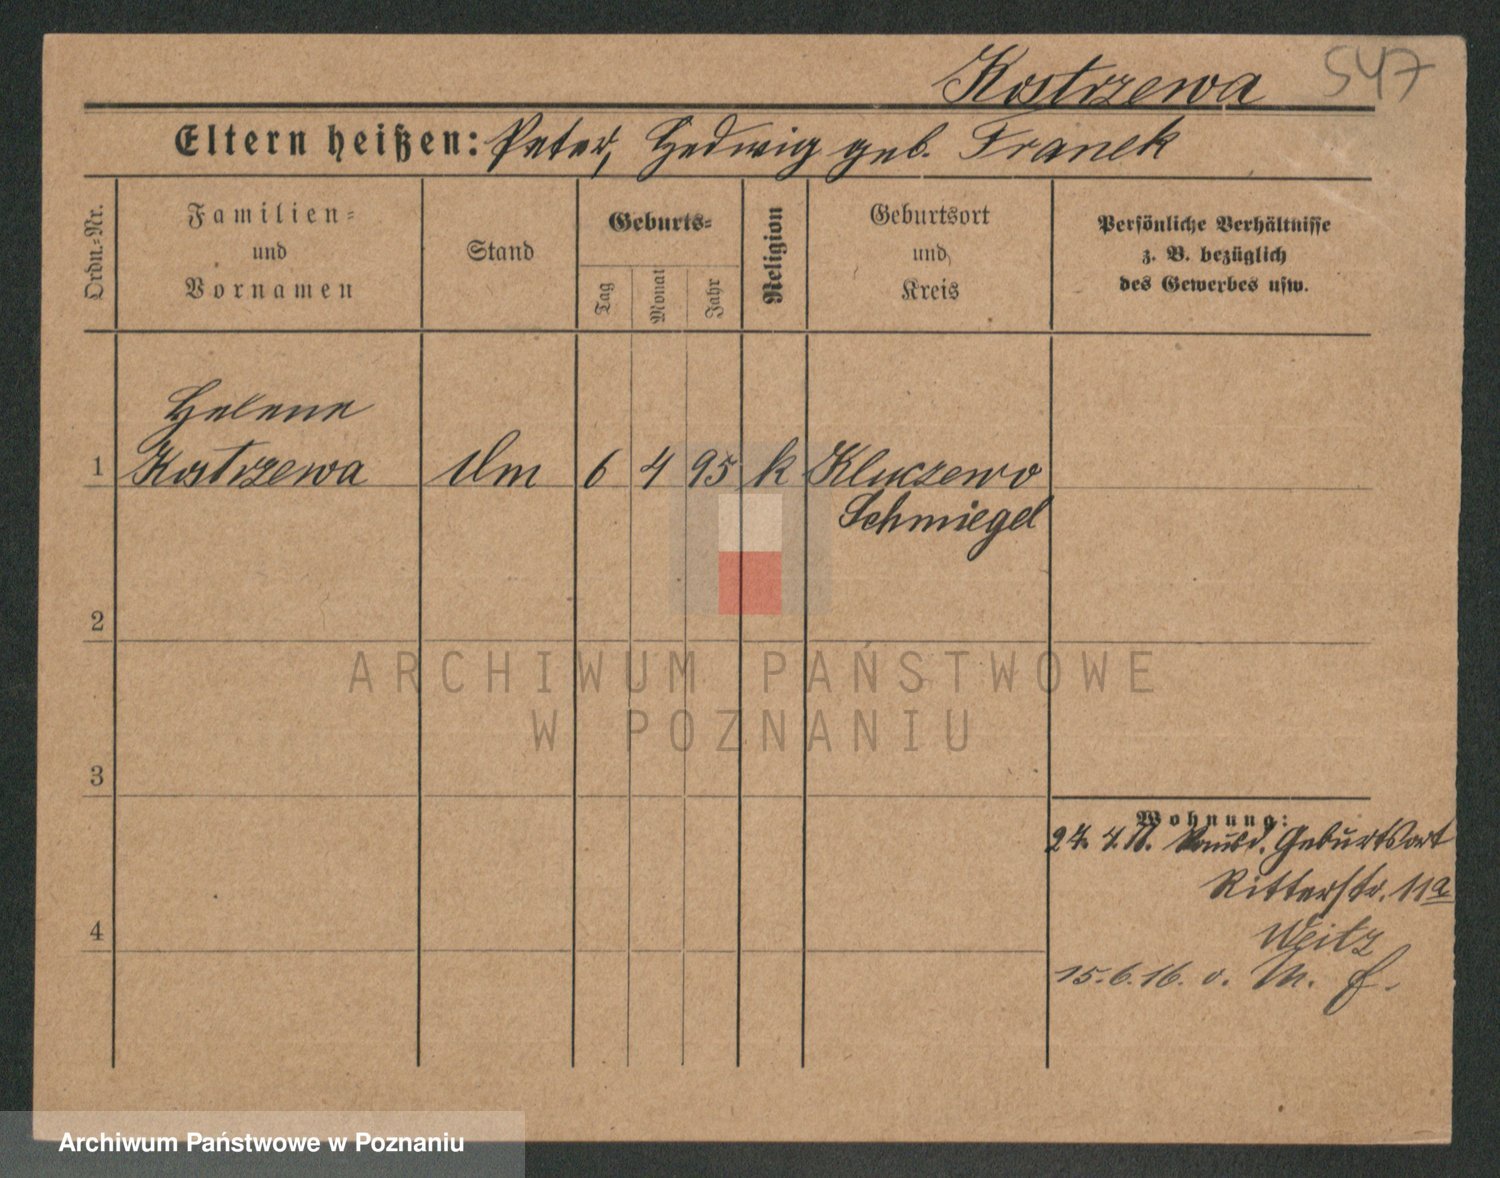 Kostrzewa 547
Eltern heißen: Peter, Hedwig geb. Franek
Ordn.-Nr.
Familien-
und
Vornamen
Stand
Geburts-
Tag
Monat
Jahr
Religion
Geburtsort
und
Kreis
Persönliche Verhältnisse
z. B. bezüglich
des Gewerbes usw.
Helene
1 Kostrzewa 6 4 95 k Kluczewo
Schmiegel
2
3
4
Wohnung:
Geburtsort
Ritterstr. 11a
Weitz
15.6.16. v.
ARCHIWUM PAŃSTWOWE
W POZNANIU
Archiwum Państwowe w Poznaniu